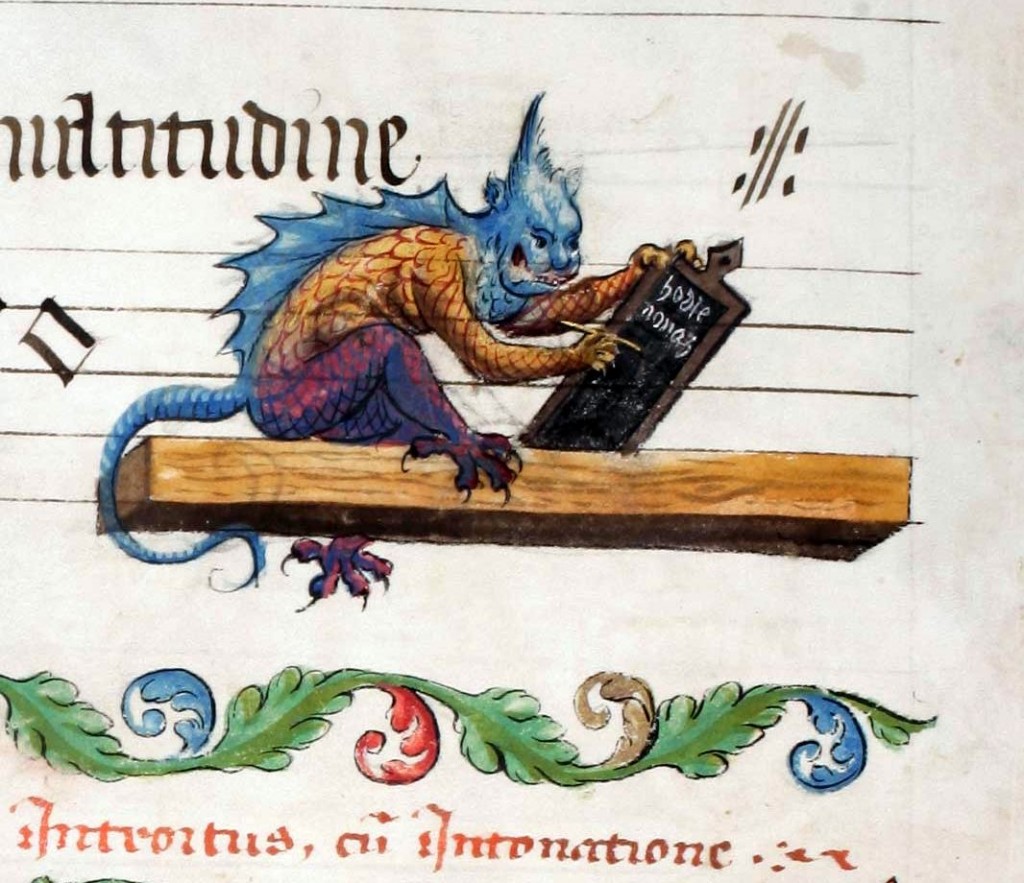 multitudine
hodie
nonas
Introitus, cū Intonatione